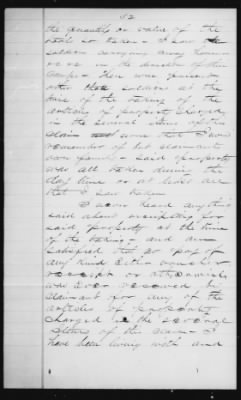 12
the quantity or value of the
said so taken - I saw the
soldiers carrying away
in the direction of their
camps - there were
other soldiers at the
time of the taking of the
articles of property charged
in the several items of this
claim now that I now
remember of but claimants
own family - said property
was all taken during the
day time or at least all
that I saw taken
I never heard anything
said about receipting for
said property at the time
of the taking - and am
satisfied that no pay of
any kind either voucher
receipt or otherwise
was ever received by
claimant for any of the
articles of property
charged in the several
items of this claim - I
have been living with and